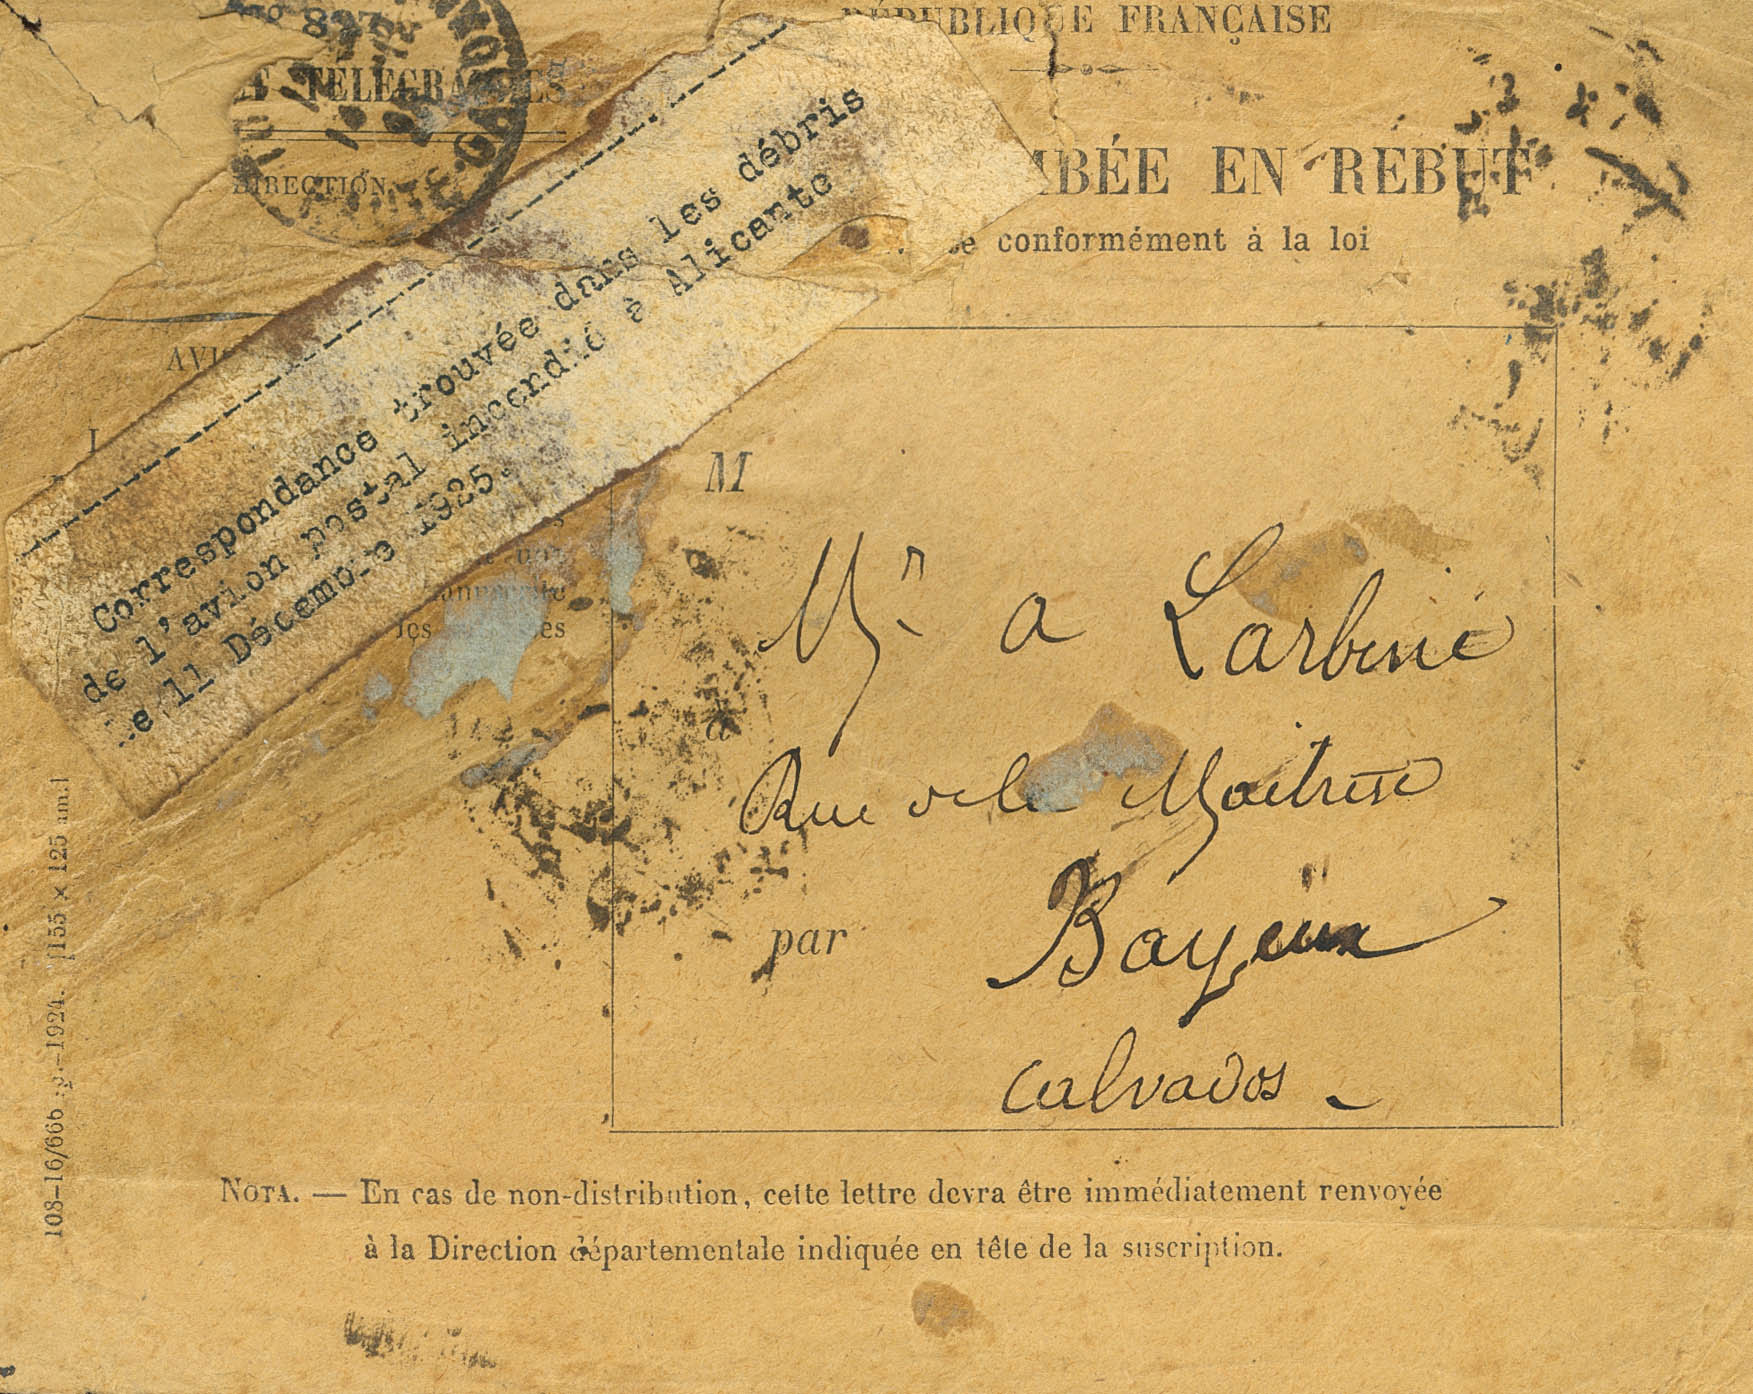 827
RÉPUBLIQUE FRANÇAISE
TÉLÉGRAPHES
DIRECTION
BÉE EN REBUT
conformément à la loi
Correspondance trouvée dans les débris
de l'avion postal incendié à Alicante
le 11 Décembre 1925.
AVIS
M
les
Mr a Larbene
à
Rue de la Maitrise
par Bayeux
Calvados
108-16/666 .p.-1924. [155 × 125 m.]
NOTA. — En cas de non-distribution, cette lettre devra être immédiatement renvoyée
à la Direction départementale indiquée en tête de la suscription.